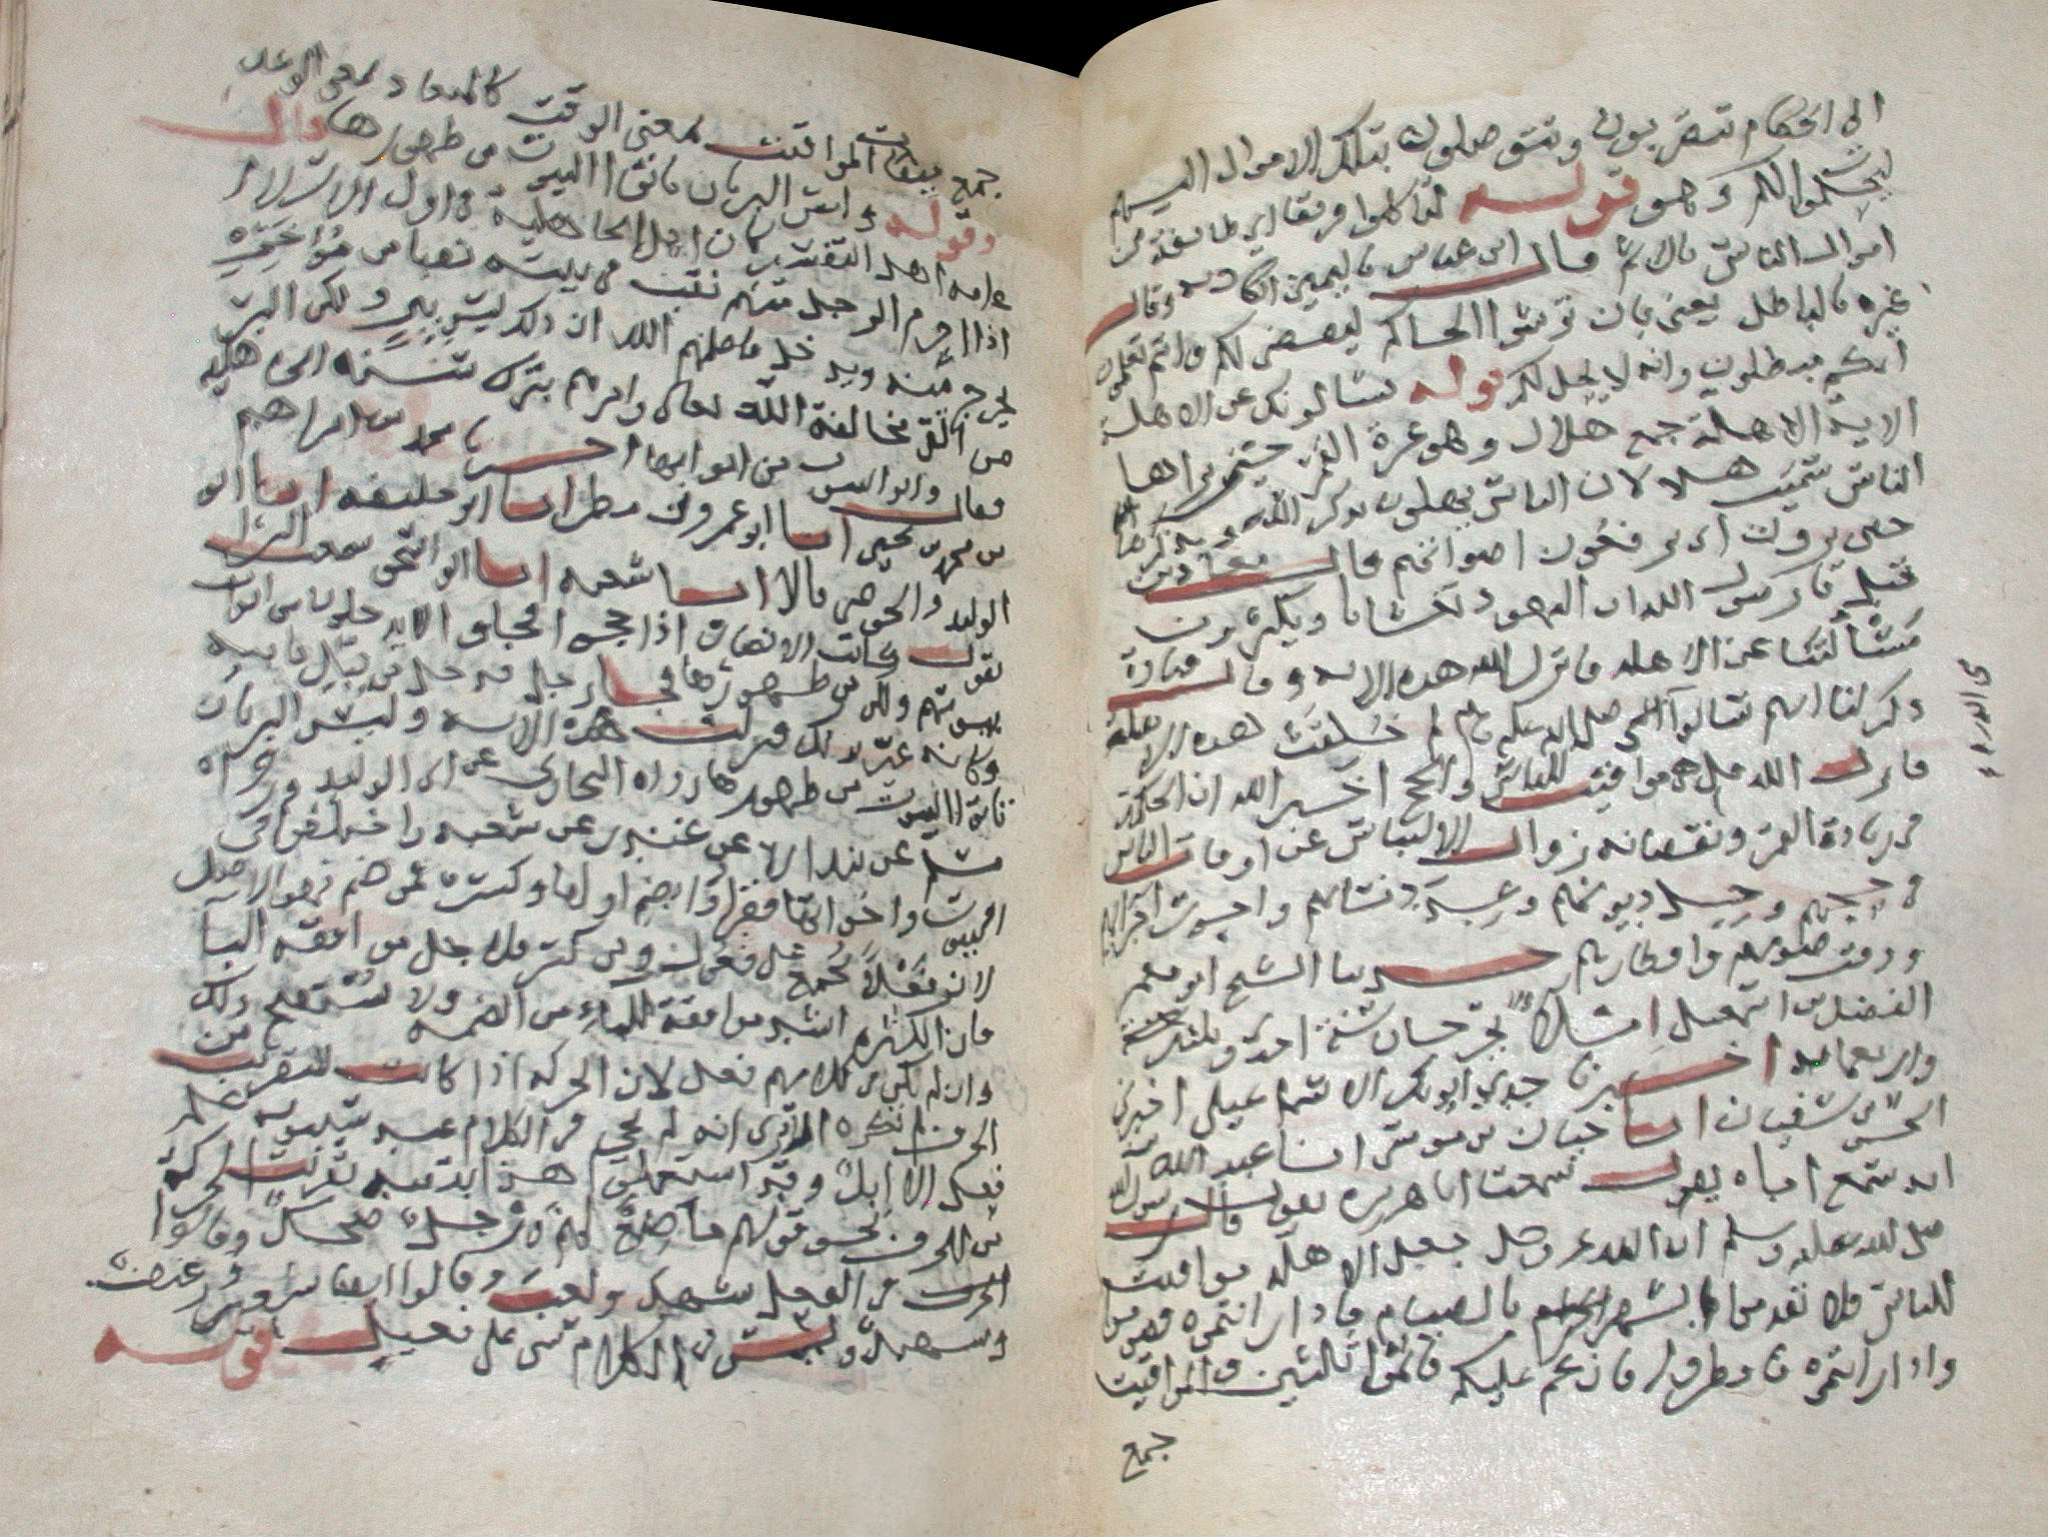 الى الحكام تتقربون وتتوصلون بتلك الاموال اليهم
ليحكموا لكم وهو قوله لتاكلوا فريقا اي طايفة من
اموال الناس بالاثم قال ابن عباس باليمين الكاذبة وقال
غيره بالباطل يعني بان ترشوا الحاكم ليقضي لكم وانتم تعلمون
انكم مبطلون وانه لا يحل لكم قوله يسالونك عن الاهلة
الاية الاهلة جمع هلال وهو غرة القمر حين يراها
الناس سميت هلالا لان الناس يهلون بذكر الله وبذكرها
حين يرون اي يرفعون اصواتهم قال معاذ بن
جبل يا رسول الله ان اليهود تغشانا ويكثرون
مسألتنا عن الاهلة فانزل الله هذه الاية وقال قتادة
ذكر لنا انهم سالوا النبي صلى الله عليه وسلم لم خلقت هذه الاهلة
فانزل الله قل هي مواقيت للناس والحج اخبر الله ان الحكمة
في زيادة القمر ونقصانه زوال الالتباس عن اوقات الناس
في حجهم وحل ديونهم وعدة نسائهم واجور اجرائهم
ووقت صومهم وافطارهم حدثنا الشيخ ابو معمر
الفضل بن اسمعيل املاء بجرجان سنة احدى وثلثين
واربعمايه اخبرنا جدي ابو بكر الاسماعيلي اخبرنا
الحسن بن سفيان انبا حبان بن موسى انبا عبد الله
انه سمع اباه يقول سمعت ابا هريره يقول قال رسول الله
صلى الله عليه وسلم ان الله عز وجل جعل الاهلة مواقيت
للناس فلا تقدموا الشهر بالصيام فاذا رايتموه فصوموا
واذا رايتموه فافطروا فان غم عليكم فاتموا ثلثين والمواقيت
جمع
جمع ميقات المواقيت بمعنى الوقت كالميعاد بمعنى الوعد
وقوله وليس البر بان تاتوا البيوت من ظهورها قال
عامة اهل التفسير كان اهل الجاهلية في اول الاسلام
اذا احرم الرجل منهم نقب في بيته نقبا من مؤخره
يخرج منه ويدخل فاعلمهم الله ان ذلك ليس ببر ولكن البر
من اتقى مخالفة الله تعالى وامرهم بترك سنة الجاهلية
فقال واتوا البيوت من ابوابها اخبرنا محمد بن ابراهيم
بن محمد بن يحيى انبا ابو عمرو بن مطر انبا ابو خليفه انبا ابو
الوليد والحوضي قالا انبا شعبه انبا ابو اسحق سمعت البراء
يقول كانت الانصار اذا حجوا فجاوا لا يدخلون من ابواب
بيوتهم ولكن من ظهورها فجاء رجل فدخل من قبل بابه
وكانه عير بذلك فنزلت هذه الاية وليس البر بان
تاتوا البيوت من ظهورها رواه البخاري عن ابي الوليد ورواه
مسلم عن بندار عن غندر عن شعبه واختلفوا في
البيوت واخواتها فقراوا بضم اولها وكسره فمن ضم فهو الاصل
لان فعلا يجمع على فعول ومن كسر فلاجل موافقة اليا
فان الكسره اشد موافقة للياء من الضمه ولا يستقبح ذلك
وان لم يكن في كلامهم فعل لان الحركة اذا كانت للتقريب من
الحرف لم تكره الا ترى انه لم يجئ في الكلام عند سيبويه على
فعل الا ابل وقد استعملوا هذا ابتغاء تقريب الحركة
من الحرف نحو قولهم ماضغ لهم ورجل ضحك وقالوا
الحرف في الفعل شهد ولعب وقالوا ايضا شعير ورغيف
وشهيد وليس في الكلام شيء على فعيل قوله